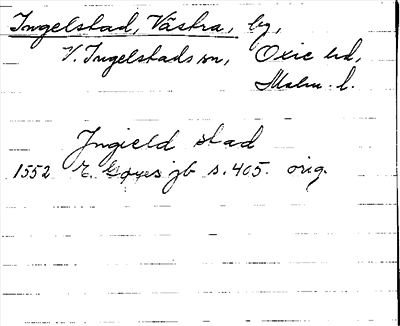 Ingelstad, Västra, by,
V. Ingelstads sn, Oxie hd,
Malm. l.
Ingield stad
1552 E. Göyes jb s. 405. orig.